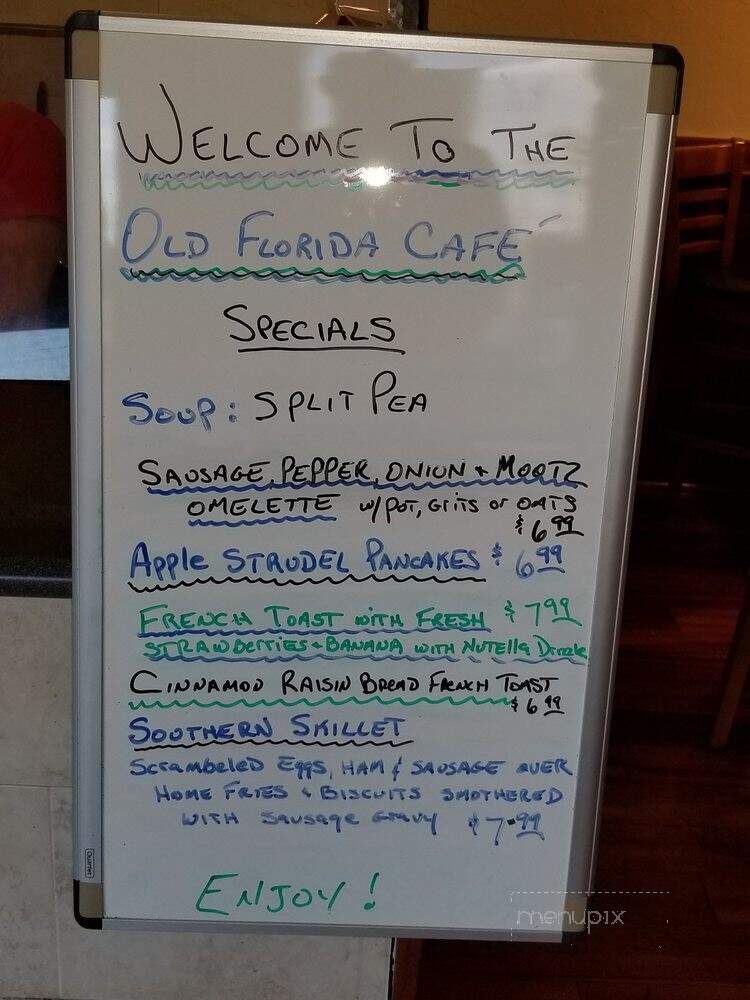 WELCOME TO THE
OLD FLORIDA CAFÉ
SPECIALS
SOUP: SPLIT PEA
SAUSAGE, PEPPER, ONION + MOOTZ
OMELETTE w/ POT, GRITS or OATS
$6.99
Apple STRUDEL PANCAKES $6.99
FRENCH TOAST WITH FRESH $7.99
STRAWBERRIES + BANANA WITH NUTELLA Drizzle
CINNAMON RAISIN BREAD FRENCH TOAST
$6.99
SOUTHERN SKILLET
SCRAMBELED EGGS, HAM & SAUSAGE OVER
HOME FRIES + BISCUITS SMOTHERED
WITH SAUSAGE GRAVY $7.99
ENJOY!
Quartet
menupix